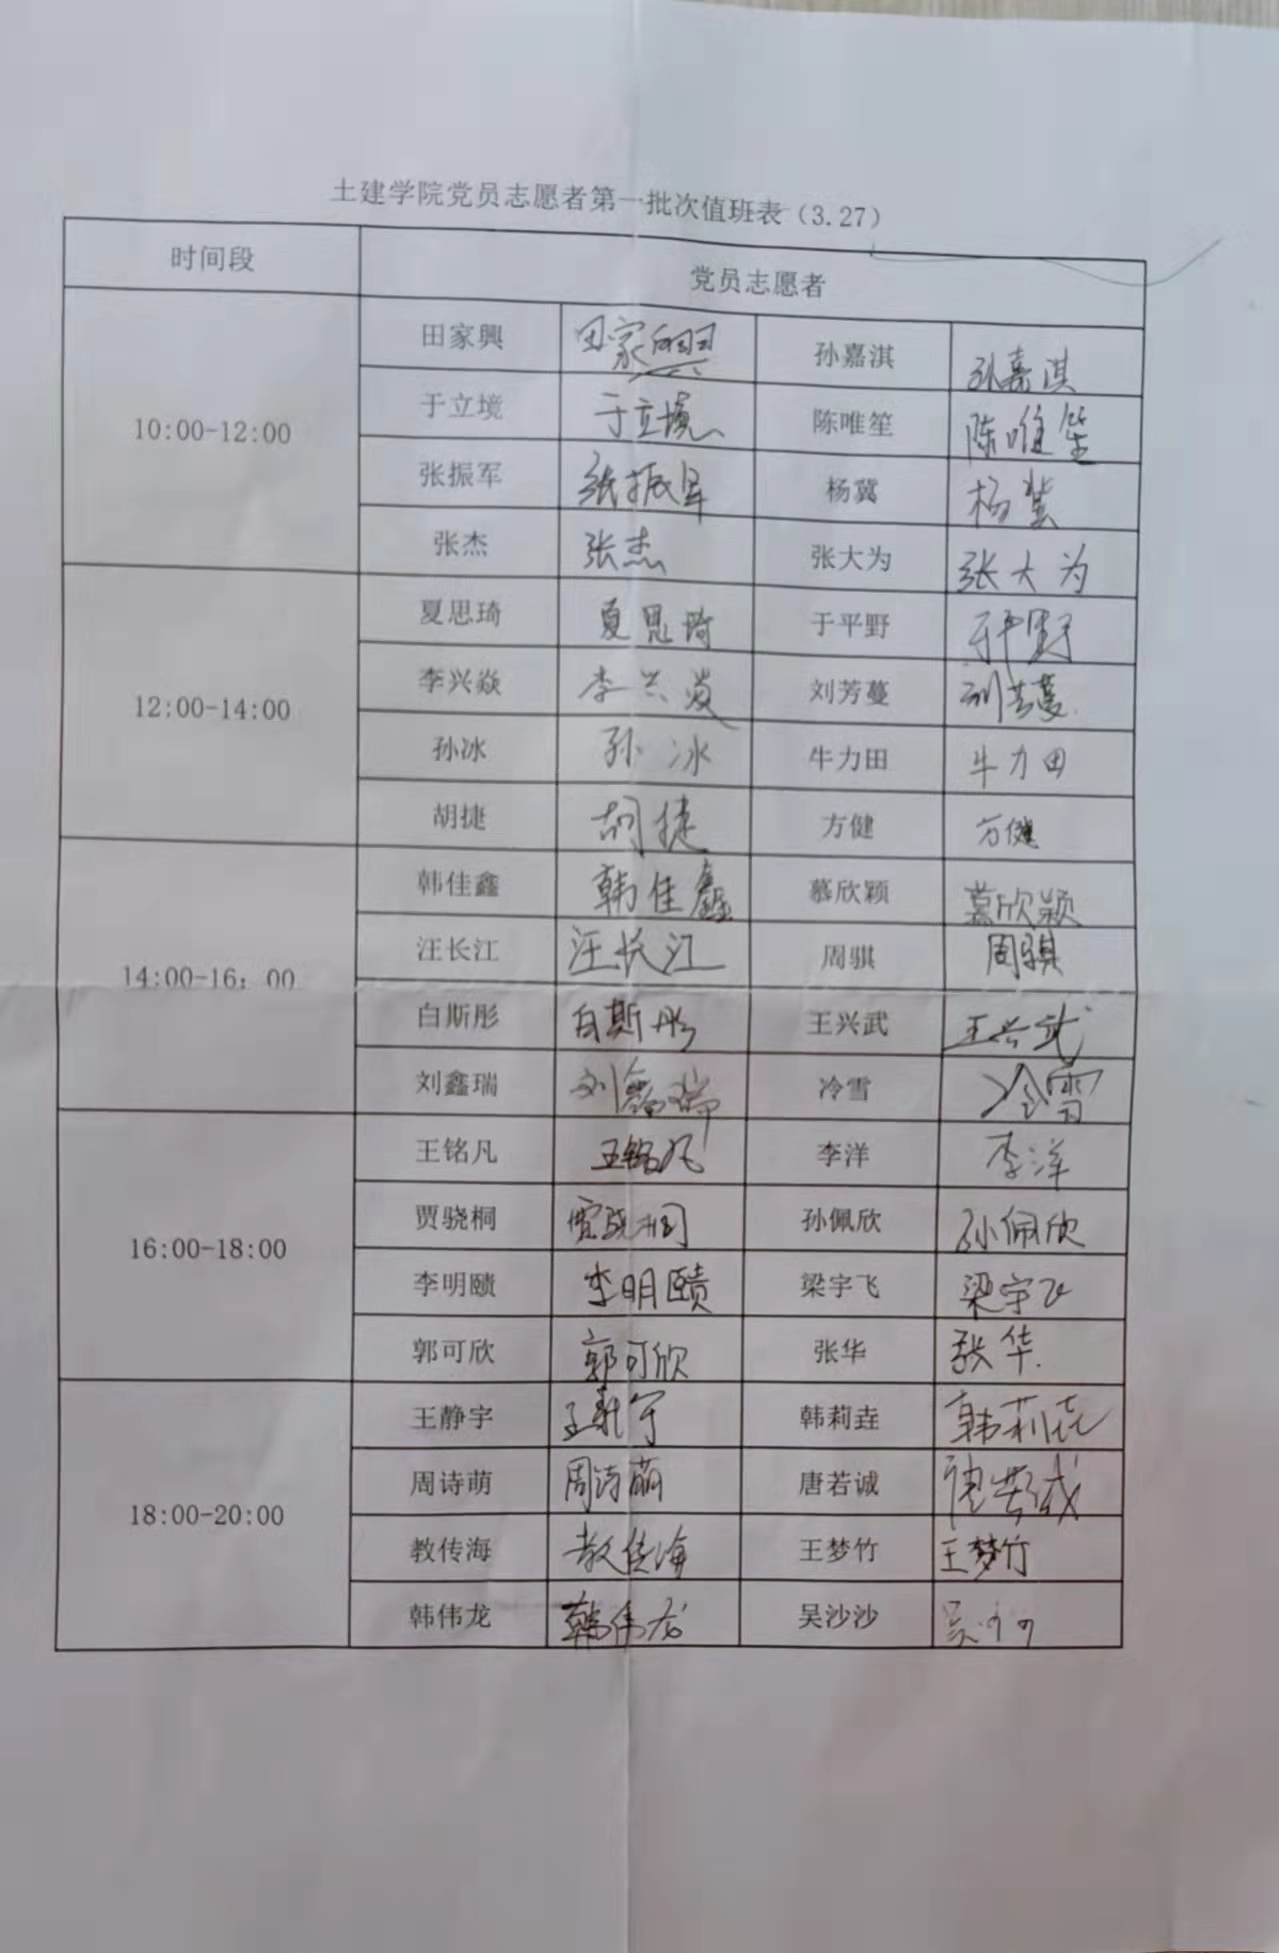 土建学院党员志愿者第一批次值班表（3.27）
时间段 党员志愿者
田家興 田家興 孙嘉淇 孙嘉淇
10:00-12:00 于立境 于立境 陈唯笙 陈唯笙
张振军 张振军 杨冀 杨冀
张杰 张杰 张大为 张大为
夏思琦 夏思琦 于平野 于平野
12:00-14:00 李兴焱 李兴焱 刘芳蔓 刘芳蔓
孙冰 孙冰 牛力田 牛力田
胡捷 胡捷 方健 方健
韩佳鑫 韩佳鑫 慕欣颖 慕欣颖
14:00-16：00 汪长江 汪长江 周骐 周骐
白斯彤 白斯彤 王兴武 王兴武
刘鑫瑞 刘鑫瑞 冷雪 冷雪
王铭凡 王铭凡 李洋 李洋
16:00-18:00 贾骁桐 贾骁桐 孙佩欣 孙佩欣
李明赜 李明赜 梁宇飞 梁宇飞
郭可欣 郭可欣 张华 张华
王静宇 王静宇 韩莉垚 韩莉垚
18:00-20:00 周诗萌 周诗萌 唐若诚 唐若诚
教传海 教传海 王梦竹 王梦竹
韩伟龙 韩伟龙 吴沙沙 吴沙沙